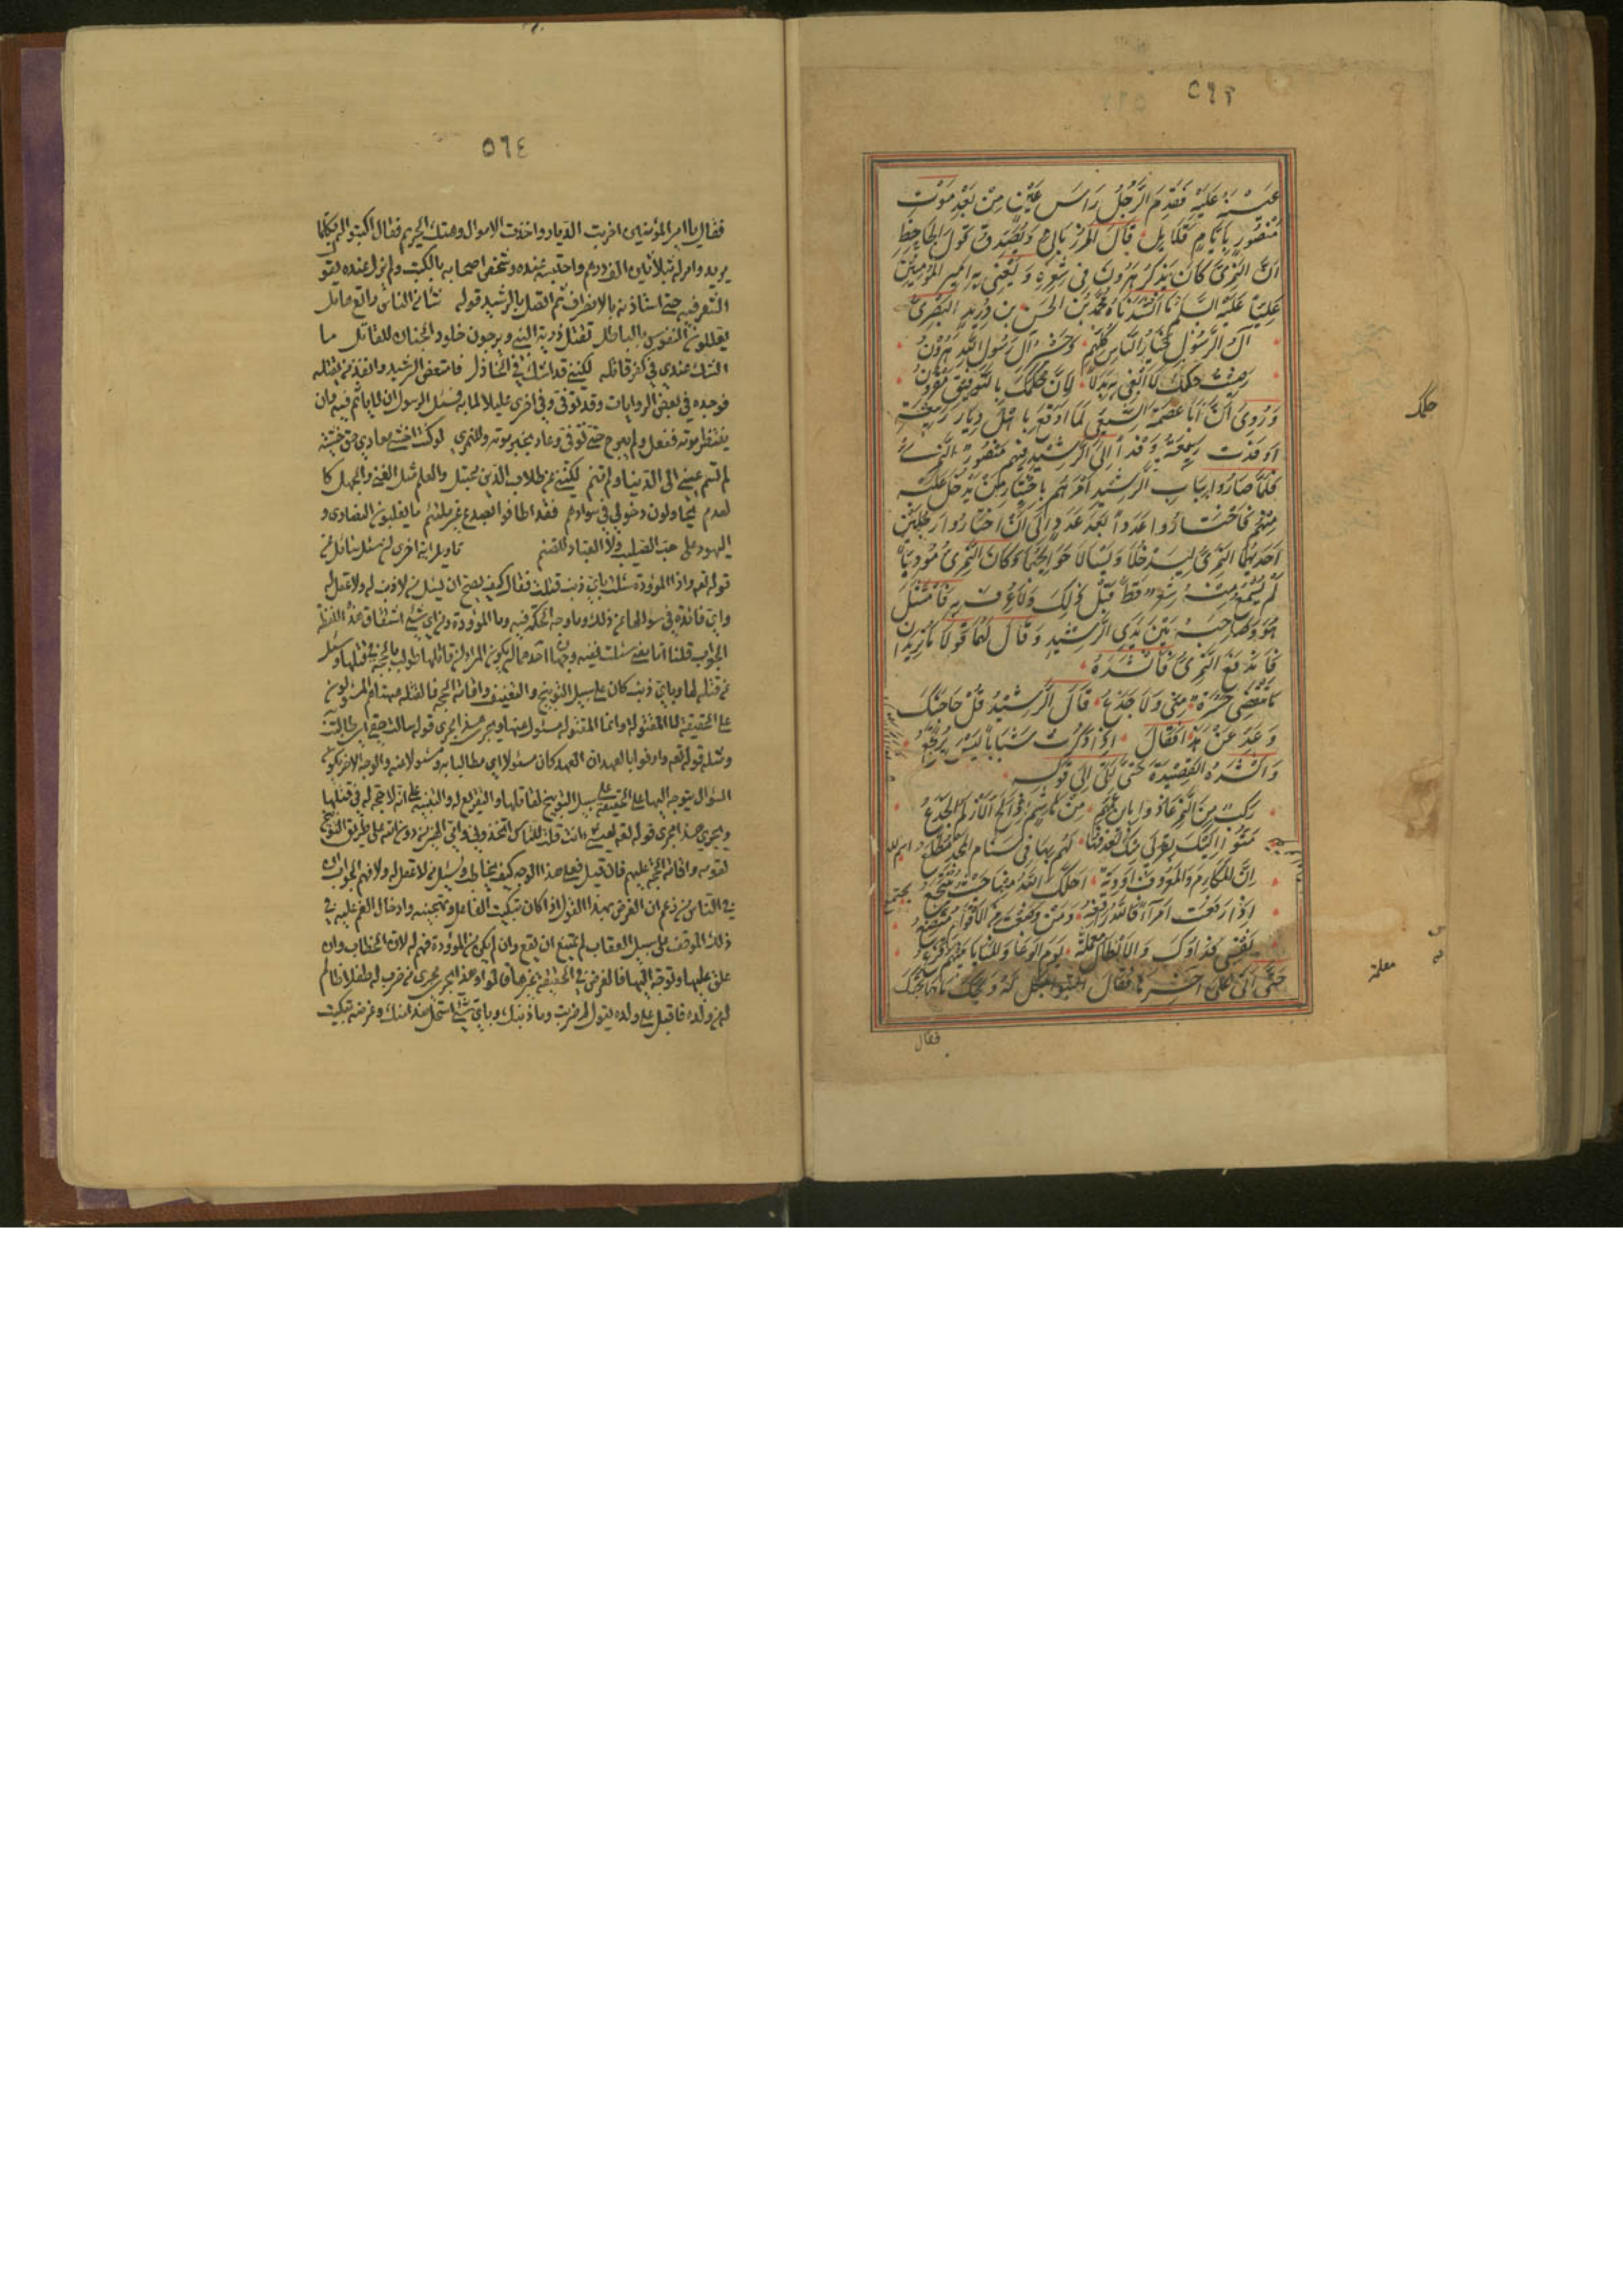 ٥٦٣
عينيه عليه فَقَدِمَ الرَّجُلُ رَاسَ عَيْنٍ مِنْ بَعْدِ مَوْتِ
مَنْصُورٍ بِاَيَّامٍ قَلَائِلَ قَالَ المَرْزُبَانِيُّ وَيُصَدِّقُ قَوْلَ الجَاحِظِ
اَنَّ النَّمَرِيَّ كَانَ يَذْكُرُ هَرُونَ فِي شِعْرِهِ وَيَعْنِي بِهِ اَمِيرَ المُؤْمِنِينَ
عَلِيّاً عَلَيْهِ السَّلَمُ مَا اَنْشَدَنَاهُ مُحَمَّدُ بْنُ الحَسَنِ بنِ دُرَيْدٍ البَصْرِيُّ
آلُ الرَّسُولِ خِيَارُ النَّاسِ كُلِّهِمُ وَخَيْرُ آلِ رَسُولِ اللهِ هَرُونُ
رَضِيتُ حِكَمَكَ لَا اَبْغِي بِهِ بَدَلًا لِاَنَّ حِكَمَكَ بِالتَّوْفِيقِ مَقْرُونُ
وَرُوِيَ اَنَّ اَبَا عِصْمَةَ الشِّيعِيَّ لَمَّا اَوْقَعَ بِاَهْلِ دِيَارِ رَبِيعَةَ
اَوْفَدَتْ رَبِيعَةُ وَفْداً اِلَى الرَّشِيدِ فِيهِم مَنْصُورٌ النَّمَرِيُّ
فَلَمَّا صَارُوا بِبَابِ الرَّشِيدِ اَمَرَهُمْ بِاخْتِيَارِ مَنْ يَدْخُلُ عَلَيْهِ
مِنْهُم فَاخْتَارُوا عَدَداً بَعْدَ عَدَدٍ اِلَى اَنِ اخْتَارُوا رَجُلَيْنِ
اَحَدُهُمَا النَّمَرِيُّ لِيَدْخُلَا وَيَسْأَلَا حَوَائِجَهُمَا وَكَانَ النَّمَرِيُّ مُؤَدِّباً
لَمْ يُسْمَعْ مِنْهُ شِعْرٌ قَطُّ قَبْلَ ذَلِكَ وَلَا عُرِفَ بِهِ فَلَمَّا مَثَلَ
هُوَ وَصَاحِبُهُ بَيْنَ يَدَيِ الرَّشِيدِ وَقَالَ لَهُمَا قُولَا مَا تُرِيدَانِ
فَانْدَفَعَ النَّمَرِيُّ فَاَنْشَدَهُ
مَا تَنْقَضِي حَسْرَةٌ مِنِّي وَلَا جَزَعُ قَالَ الرَّشِيدُ قُلْ حَاجَتَكَ
وَعَدِّ عَنْ هَذَا فَقَالَ اِذَا ذَكَرْتُ شَبَاباً لَيْسَ يُرْتَجَعُ
وَاَنْشَدَهُ القَصِيدَةَ حَتَّى انْتَهَى اِلَى قَوْلِهِ
رَكْبٌ مِنَ النَّمِرِ عَاذُوا بِابْنِ عَمِّهِمِ مِنْ هَاشِمٍ اِذْ اَلَحَّ الاَزْلَمُ الجَذَعُ
مَتُّوا اِلَيْكَ بِقُرْبَى مِنْكَ تَعْرِفُهَا لَهُمْ بِهَا فِي سَنَامِ المَجْدِ مُطَّلَعُ
اِنَّ المَكَارِمَ وَالمَعْرُوفَ اَوْدِيَةٌ اَحَلَّكَ اللهُ مِنْهَا حَيْثُ تَجْتَمِعُ
اِذَا رَفَعْتَ امْرَأً فَاللهُ رَافِعُهُ وَمَنْ وَضَعْتَ مِنَ الاَقْوَامِ مُتَّضِعُ
نَفْسِي فِدَاؤُكَ وَالاَبْطَالُ مُعْلَمَةٌ يَوْمَ الوَغَا وَالمَنَايَا بَيْنَهُمْ قُرَعُ
حَتَّى اَتَى عَلَى اَخِرِهَا فَقَالَ وَيْحَكَ مَا حَاجَتُكَ
فقال
حكمك
معلمة
٥٦٤
فقال يا امير المؤمنين اخربت الديار واخذت الاموال وهتك الحريم فقال اكتبوا له بكلما
يريد وامر له بثلاثين الف درهم واحتبسه عنده وشخص اصحابه بالكتب ولم يزل عنده يقول
الشعر فيه حتى استاذنه بالانصراف ثم اتصل بالرشيد قوله شاء من الناس راتع هامل
يعللون النفوس بالباطل تقتل ذرية النبي ويرجون خلود الجنان للقاتل ما
الشك عندي في كفر قاتله لكنني قد اشك في الخاذل فامتعض الرشيد وانفذ من يقتله
فوجده في بعض الروايات وقد توفي وفي اخرى عليلا لما به فسئل الرسول ان لا ياثم فيه وان
ينتظر موته ففعل ولم يبرح حتى توفي وعاد بخبر موته وللنمري لو كنت اخشى معادي حق خشيته
لم تسم عيني الى الدنيا ولم تنم لكنني عن طلاب الدين محتبل والعلم مثل الغنى والجهل كا
لعدم يحاولون دخولي في سوادهم فقد اطافوا بصدع غير ملتئم ما يغلبون النصارى و
اليهود على حب القلوب ولا العباد للصنم تاويل اية اخرى ان سئل سائل عن
قوله تعه واذا الموؤدة سئلت باي ذنب قتلت فقال كيف يصح ان يسئل من لا ذنب له ولا عقل له
واي فائدة في سوالها عن ذلك وما وجه الحكمة فيه وما الموؤدة ومن اي شئ اشتقاق هذه اللفظة
الجواب قلنا اما معنى سئلت ففيه وجهان احدهما ان يكون المراد ان قاتلها طولب بالحجة في قتلها وسئل
عن قتله لها وباي ذنب كان على سبيل التوبيخ والتعنيف واقامة الحجة فالقتلة هيهنا هم المسئولون
على الحقيقة لا المقتولة وانما المقتولة مسئول عنها ويجري هذا مجرى قوله سالت حقي اي طالبت به
ومثله قوله تعه واوفوا بالعهد ان العهد كان مسئولا اي مطالبا به ومسئولا عنه والوجه الاخر ان يكون
السؤال يتوجه اليها على الحقيقة على سبيل التوبيخ لقاتلها والتقريع له والتنبيه على انه لا حجة له في قتلها
ويجري هذا مجرى قوله تعه لعيسى ءانت قلت للناس اتخذوني وامي الهين من دون الله على طريق التوبيخ
لقومه واقامة الحجة عليهم فان قيل فعلى هذا الوجه كيف يخاطب ويسئل من لا عقل له ولا فهم الجواب ان
في الناس من زعم ان الغرض بهذا القول اذا كان تبكيت الفاعل وتهجينه وادخال الغم عليه في
ذلك الموقف على سبيل العقاب لم يمتنع ان يقع وان لم يكن من الموؤدة فهم له لان الخطاب وان
علق عليها وتوجه اليها فالغرض في الحقيقة به غيرها قالوا وهذا يجري مجرى من ضرب ظالم طفلا
من ولده فاقبل على ولده يقول له ضربت وما ذنبك وباي شئ استحل هذا منك وغرضه تبكيت